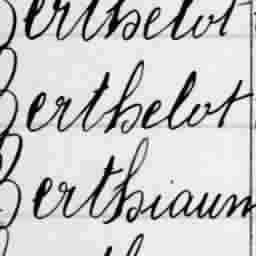 Berthelot
Berthelot
Berthiaum